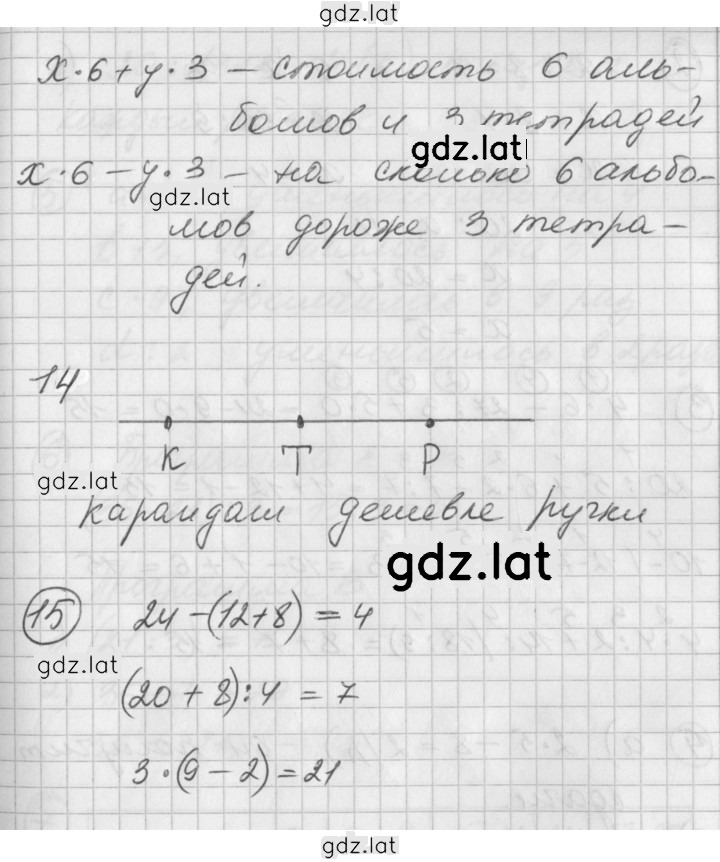 gdz.lat
x·6+y·3 – стоимость 6 аль-
бомов и 3 тетрадей
gdz.lat
x·6–y·3 – на сколько 6 альбо-
gdz.lat
мов дороже 3 тетра-
дей.
14
К Т Р
gdz.lat
карандаш дешевле ручки
gdz.lat
15 24–(12+8)=4
gdz.lat
(20+8):4=7
3·(9–2)=21
gdz.lat